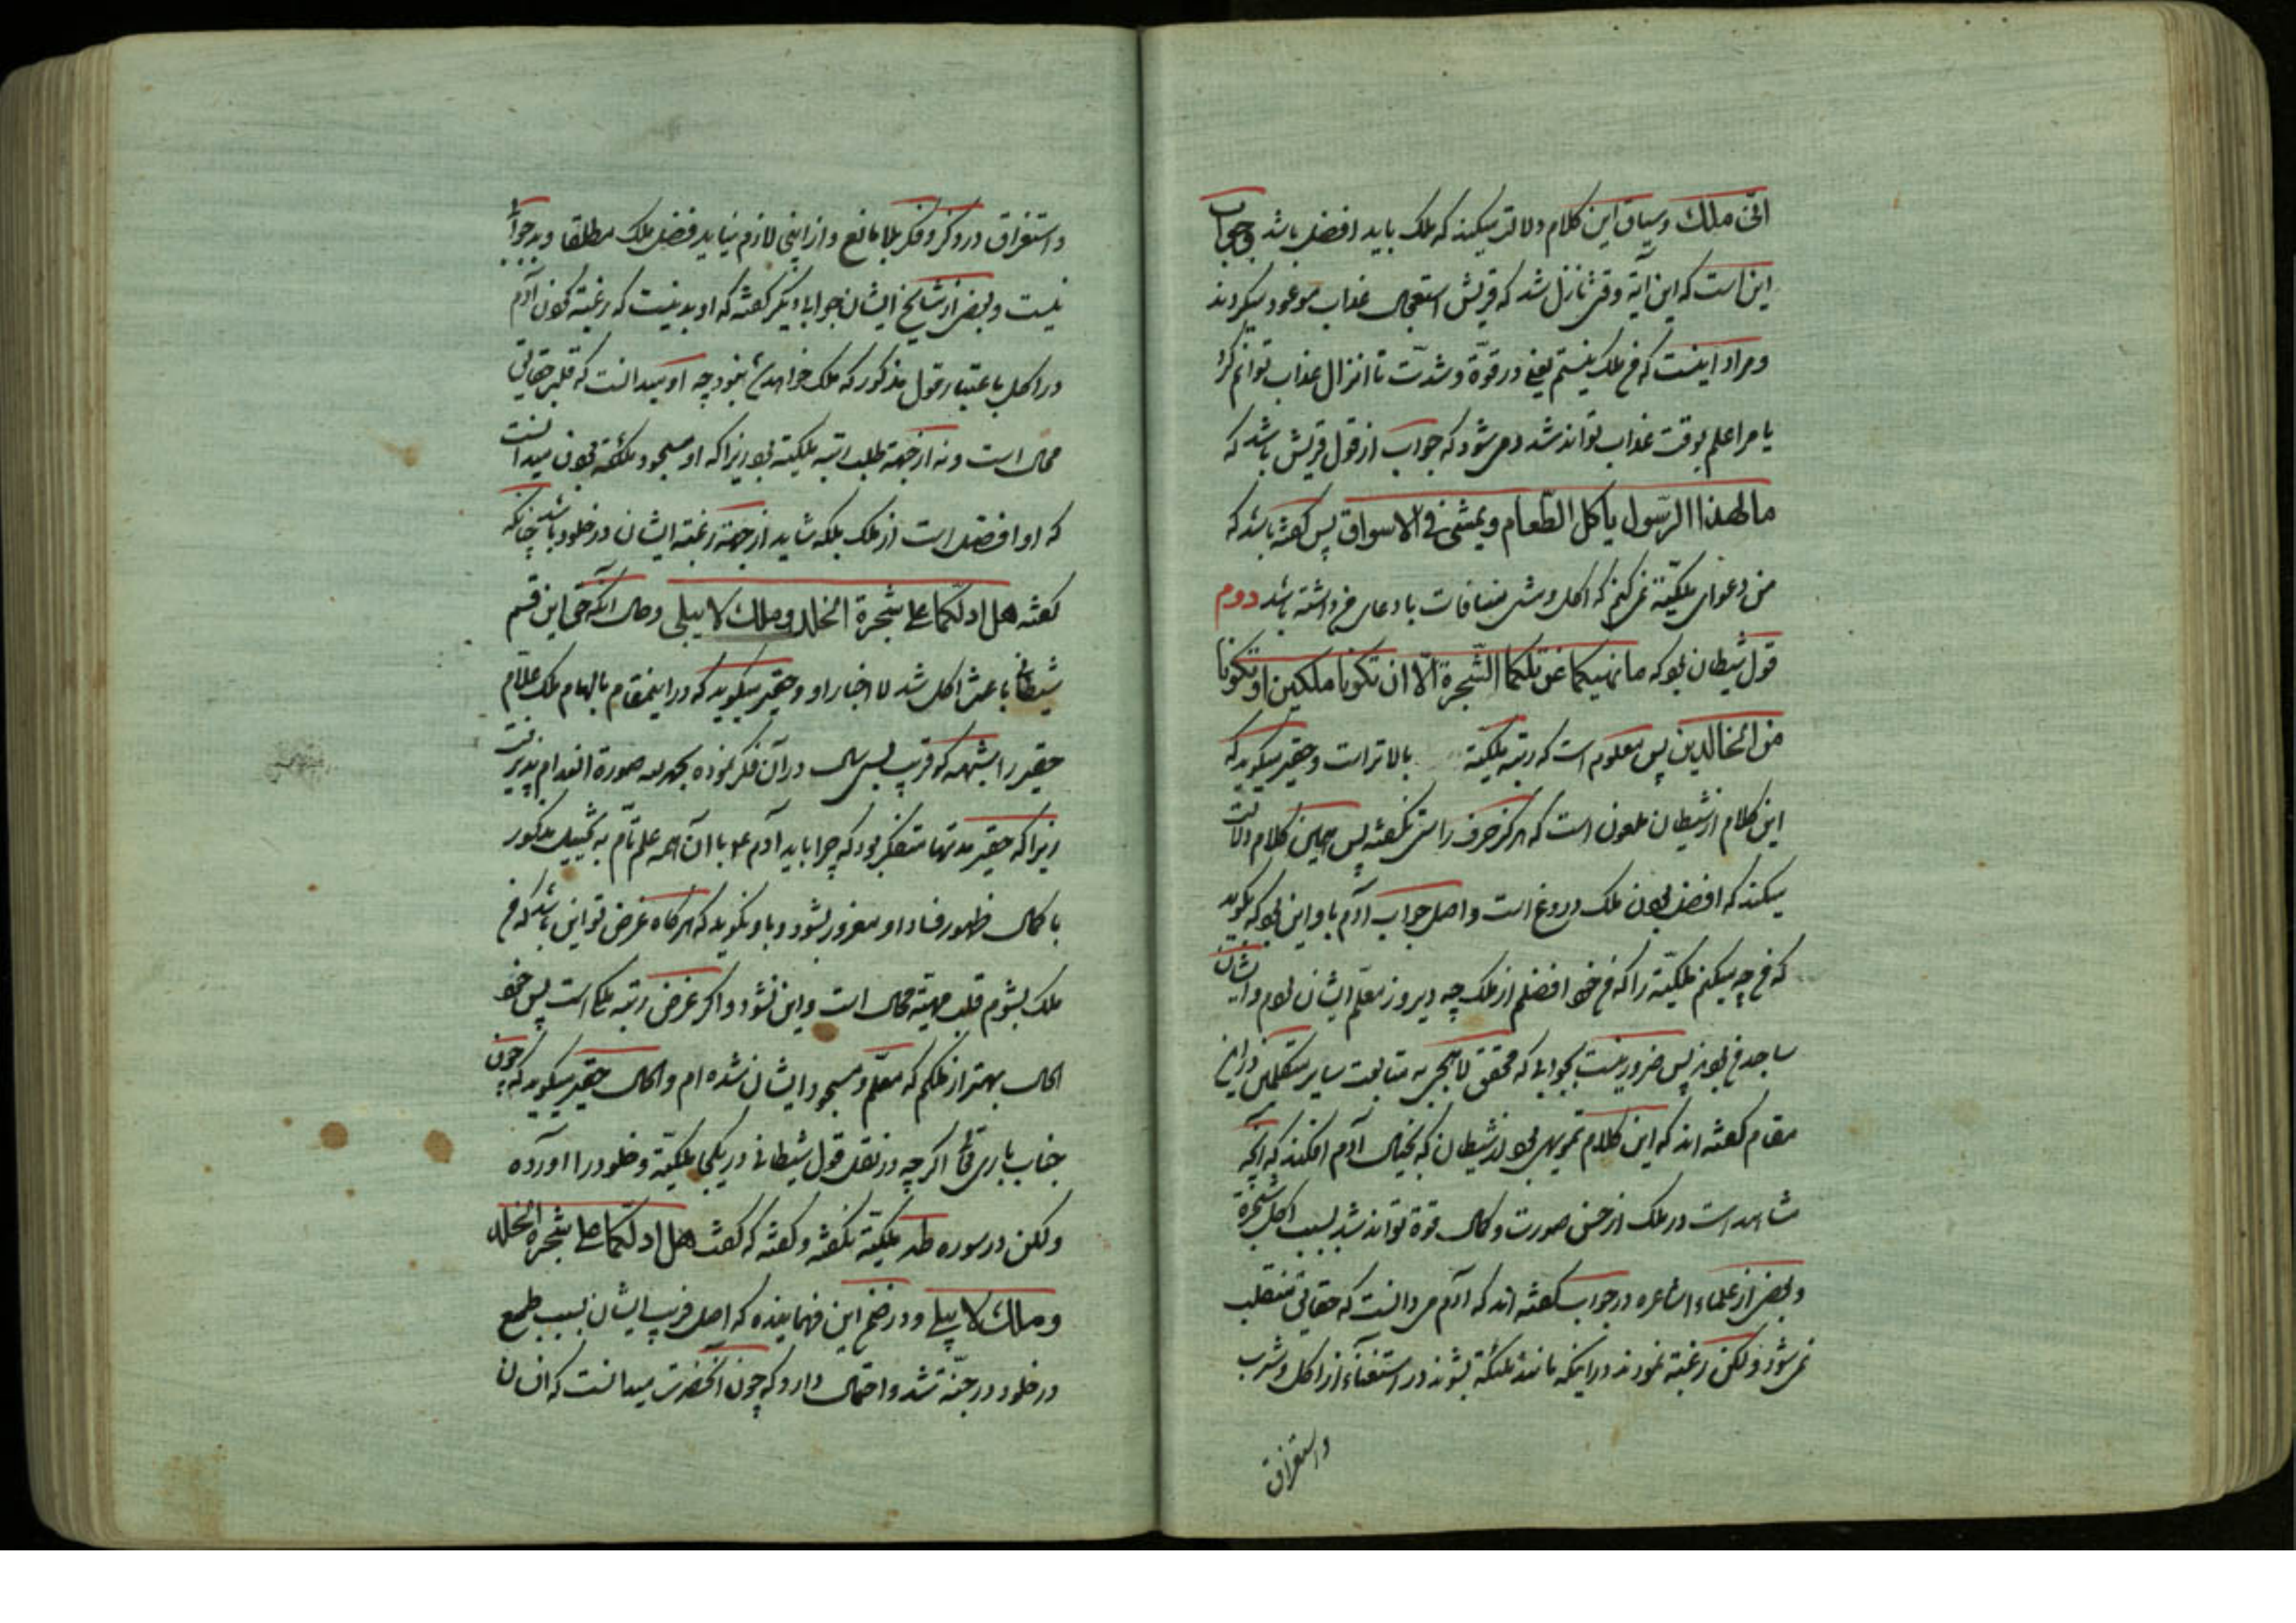 انّی ملك و سیاق این کلام دلالت میکند که ملک باید افضل باشد و جواب
این است که این آیة وقتی نازل شد که قریش استعجال عذاب موعود میکردند
و مراد اینست که من ملک نیستم یعنی در قوّة و شدّت تا انزال عذاب توانم کرد
یا مرا علم بوقت عذاب تواند شد و می شود که جواب از قول قریش باشد که
ما لهذا الرّسول یأکل الطّعام و یمشی فی الاسواق پس کفته باشد که
من دعوای ملکیّة نمی کنم که اکل و مشی منافات با دعای من داشته باشد دوم
قول شیطان بود که ما نهیکما عن تلکما الشّجرة الّا ان تکونا ملکین او تکونا
من الخالدین پس معلوم است که رتبه ملکیّة بالاتر است و حقیر میکوید که
این کلام از شیطان ملعون است که هرکز حرف راستی نکفته پس همین کلام دلالت
میکند که افضل بودن ملک دروغ است و اصل جواب آدم باو این بود که بکوید
که من چه میکنم ملکیّة را که من خود افضلم از ملک چه دیروز معلّم ایشان بودم و ایشان
ساجد من بودند پس ضرور نیست بجوابی که محقق لاهیجی به متابعت سایر متکلمین در این
مقام کفته اند که این کلام تمویهی بود از شیطان که بخیال آدم افکند که آنچه
مشاهد است در ملک از حسن صورت و کمال قوة تواند شد بسبب اکل شجرة
و بعضی از علماء اشاعره در جواب کفته اند که آدم می دانست که حقایق منقلب
نمی شود و لکن رغبته نمودند در اینکه مانند ملئکة بشوند در استغناء از اکل و شرب
و استغراق
و استغراق در ذکر و فکر بلا مانع و از این لازم نیاید فضل ملک مطلقا و بد جوابی
نیست و بعضی از مشایخ ایشان جوابا دیکر کفته که او بد نیست که رغبته کردن آدم
در اکل باعتبار قول مذکور که ملک خواهد شد نبود چه او میدانست که قلب حقایق
محال است و نه از جهة طلب رتبه ملکیته بود زیرا که او مسجود ملئکه بودن میدانست
که او افضل است از ملک بلکه شاید از جهة رغبته ایشان در خلود باشد چنانکه
کفته هل ادلّکما علی شجرة الخلد و ملك لا یبلی و حال آنکه حق این قسم
شیطانی باعث اکل شد لا اخبار او و حقیر میکوید که در اینمقام بالهام ملک علّام
حقیر را شبهه که قریب بسی سال در آن فکر نموده بحمد لله صورة انعدام پذیرفت
زیرا که حقیر مدتها متفکر بود که چرا باید آدم ع با آن همه علم تامّ به تخییل مذکور
با کمال ظهور فساد او مغرور بشود و باو نکوید که هرکاه غرض تو این باشد که من
ملک بشوم قلب مهیّة محال است و این نشود و اکر غرض رتبه ملک است پس خود
الحال بهتر از ملکم که معلّم و مسجود ایشان شده ام و الحال حقیر میکوید که چون
جناب باری تعالی اکرچه در نقل قول شیطان در یکجا ملکیّة و خلود را آورده
و لکن در سوره طه ملکیّة نکفته و کفته که کفت هل ادلّکما علی شجرة الخلد
و ملك لا یبلی و در ضمن این فهمانیده که اصل فریب ایشان بسبب طمع
در خلود در جنّة شد و احتمال دارد که چون آنحضرت میدانست که انسان